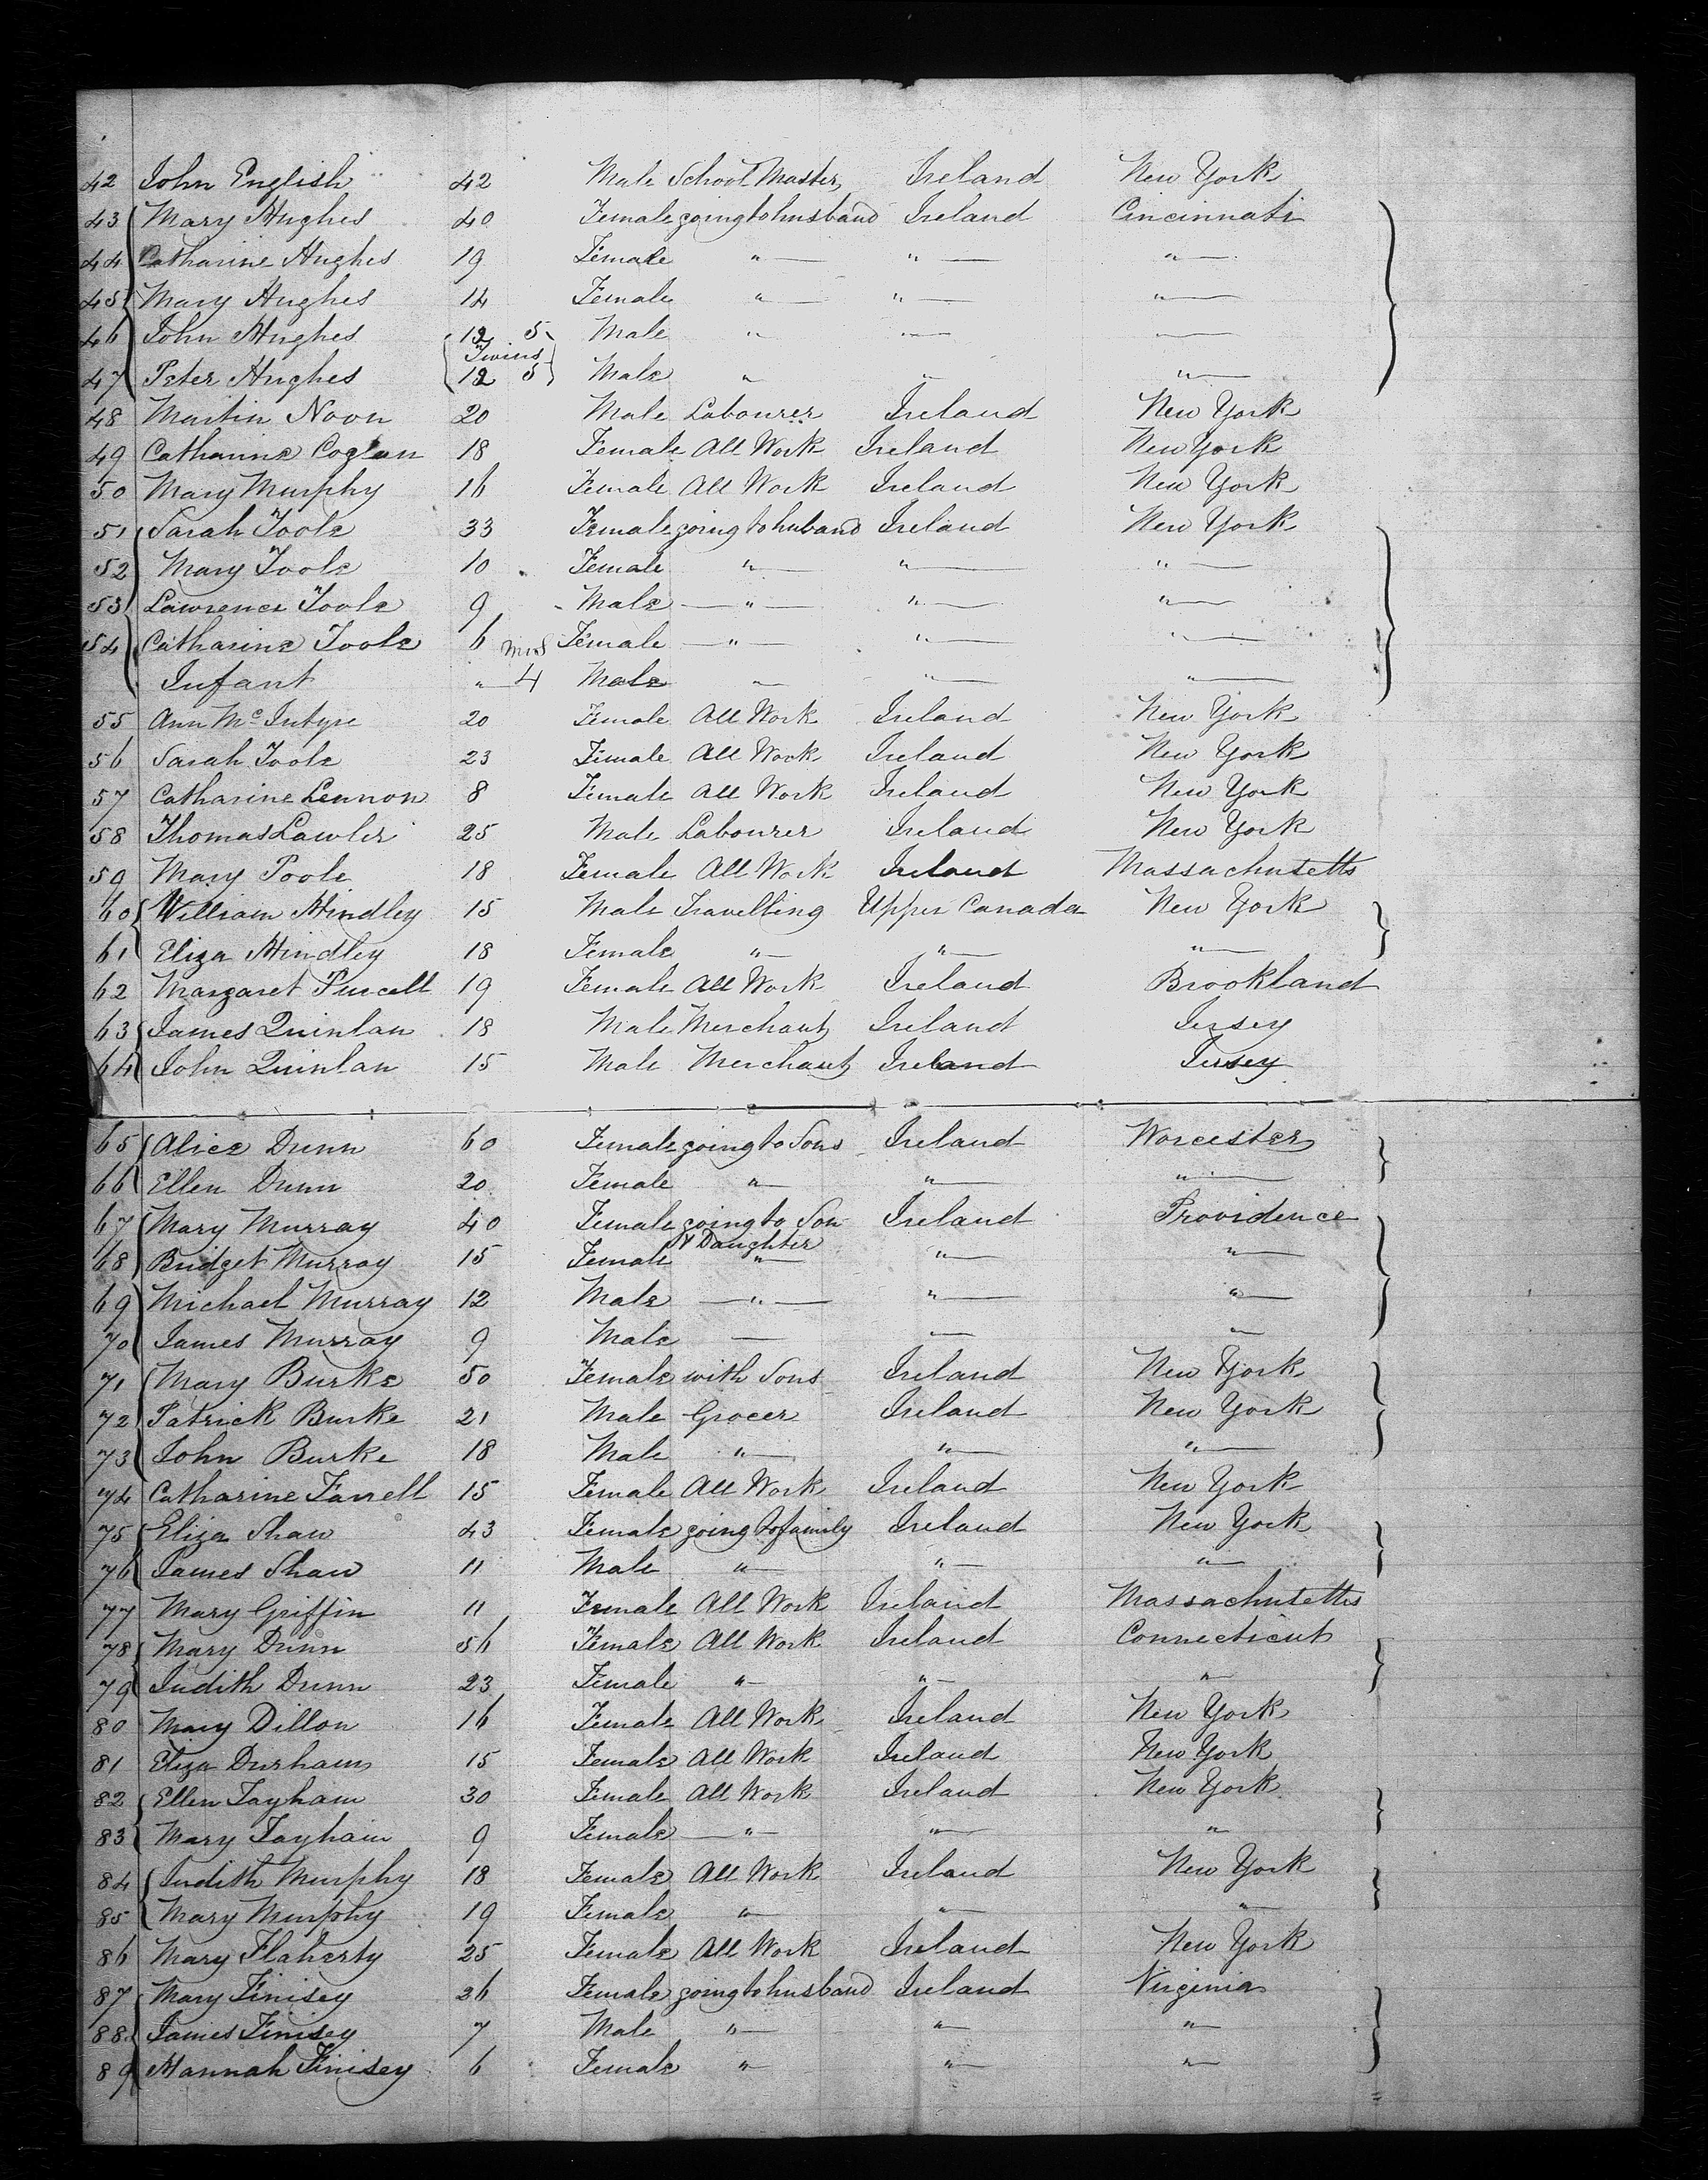 42 John English 42 Male School Master Ireland New York
43 Mary Hughes 40 Female going to husband Ireland Cincinnati
44 Catharine Hughes 19 Female " " "
45 Mary Hughes 14 Female " " "
46 John Hughes 12 5 Male "
Twins
47 Peter Hughes 12 5 Male " " "
48 Martin Noon 20 Male Labourer Ireland New York
49 Catharine Coglan 18 Female All Work Ireland New York
50 Mary Murphy 16 Female All Work Ireland New York
51 Sarah Toole 33 Female going to huband Ireland New York
52 Mary Toole 10 Female " " "
53 Lawrence Toole 9 Male " " "
54 Catharine Toole 6 Female " " "
mos
Infant " 4 Male " " "
55 Ann McIntyre 20 Female All Work Ireland New York
56 Sarah Toole 23 Female All Work Ireland New York
57 Catharine Lennon 8 Female All Work Ireland New York
58 Thomas Lawler 25 Male Labourer Ireland New York
59 Mary Poole 18 Female All Work Ireland Massachusetts
60 William Hindley 15 Male Travelling Upper Canada New York
61 Eliza Hindley 18 Female " " "
62 Margaret Purcell 19 Female All Work Ireland Brookland
63 James Quinlan 18 Male Merchant Ireland Jersey
64 John Quinlan 15 Male Merchant Ireland Jersey
65 Alice Dunn 60 Female going to Sons Ireland Worcester
66 Ellen Dunn 20 Female " " "
67 Mary Murray 40 Female going to Son Ireland Providence
& Daughter
68 Bridget Murray 15 Female " " "
69 Michael Murray 12 Male " " "
70 James Murray 9 Male "
71 Mary Burke 50 Female with Sons Ireland New York
72 Patrick Burke 21 Male Grocer Ireland New York
73 John Burke 18 Male " " "
74 Catharine Farrell 15 Female All Work Ireland New York
75 Eliza Shaw 43 Female going to family Ireland New York
76 James Shaw 11 Male " " "
77 Mary Griffin 11 Female All Work Ireland Massachusetts
78 Mary Dunn 56 Female All Work Ireland Connecticut
79 Judith Dunn 23 Female " " "
80 Mary Dillon 16 Female All Work Ireland New York
81 Eliza Durham 15 Female All Work Ireland New York
82 Ellen Tayham 30 Female All Work Ireland New York
83 Mary Tayham 9 Female " " "
84 Judith Murphy 18 Female All Work Ireland New York
85 Mary Murphy 19 Female " " "
86 Mary Flaherty 25 Female All Work Ireland New York
87 Mary Finisey 26 Female going to husband Ireland Virginia
88 James Finisey 7 Male " " "
89 Hannah Finisey 6 Female " " "